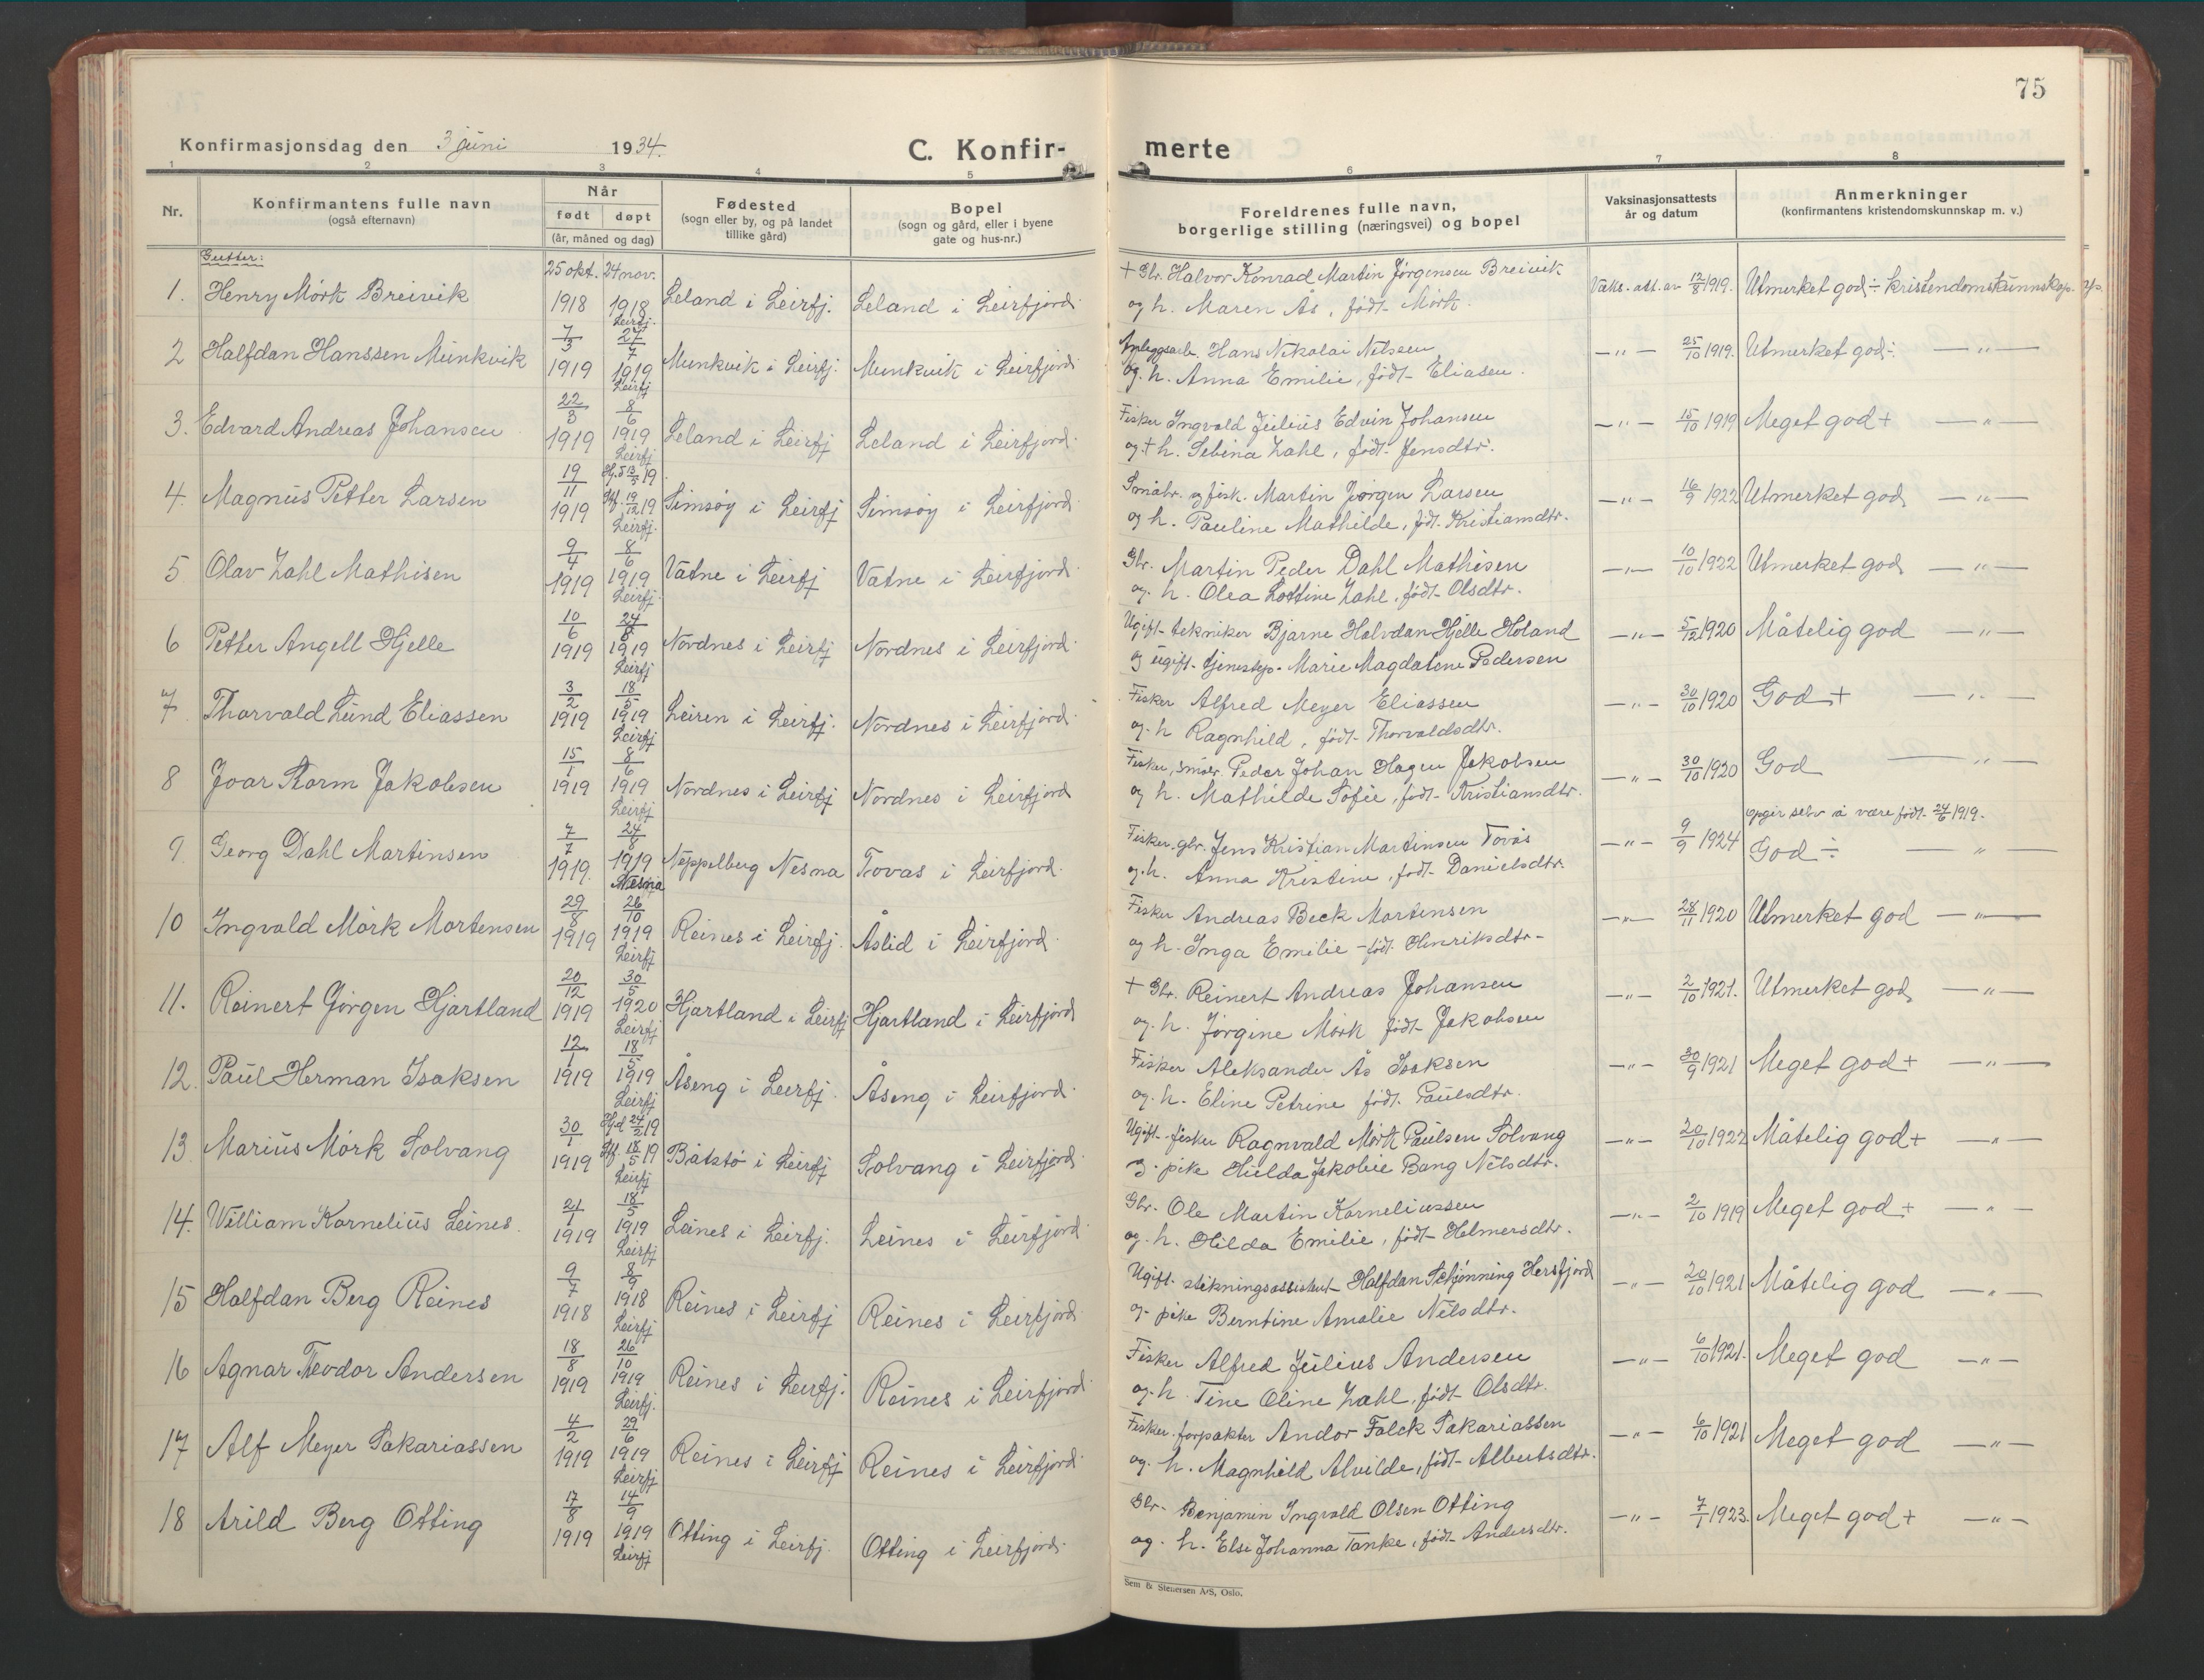 75
Konfirmasjonsdag den 3 juni 1934.
C. Konfir-
merte
1 2 3 4 5 6 7 8
Nr.
Konfirmantens fulle navn
(også efternavn)
Når
født døpt
(år, måned og dag)
Fødested
(sogn eller by, og på landet
tillike gård)
Bopel
(sogn og gård, eller i byene
gate og hus-nr.)
Foreldrenes fulle navn,
borgerlige stilling (næringsvei) og bopel
Vaksinasjonsattests
år og datum
Anmerkninger
(konfirmantens kristendomskunnskap m. v.)
Gutter:
1. Henry Mörk Breivik 25 okt. 1918 24 nov. 1918 Leirfj. Leland i Leirfj. Leland i Leirfjord
+ Gbr. Halvor Konrad Martin Jörgensen Breivik
og h. Maren Ås, født Mörk.
Vaks. att. av 12/8 1919. Utmerket god ÷ kristendomskunnskap.
2 Halfdan Hanssen Munkvik 7/3 1919 27/7 1919 Leirfj Munkvik i Leirfj. Munkvik i Leirfjord
Anleggsarb. Hans Nikolai Nilsen
og h. Anna Emilie, født Eliasen.
—"— 25/10 1919. Utmerket god ÷ —"—
3. Edvard Andreas Johansen 22/3 1919 8/6 1919 Leirfj Leland i Leirfj Leland i Leirfjord
Fisker Ingvald Julius Edvin Johansen
og + h. Sebina Zahl, født Jensdtr.
—"— 15/10 1919 Meget god + —"—
4. Magnus Petter Larsen 19/11 1919 Hj.d 13/5 19 Stf. 19/12 19 Leirfj. Simsöy i Leirfj Simsöy i Leirfjord
Småbr. og fisk. Martin Jörgen Larsen
og h. Pauline Mathilde, født Kristiansdtr.
—"— 16/9 1922 Utmerket god —"—
5 Olav Zahl Mathisen 9/4 1919 8/6 1919 Leirfj. Vatne i Leirfj Vatne i Leirfjord
Gbr. Martin Peder Dahl Mathisen
og h. Olea Lottine Zahl, født Olsdtr.
—"— 10/10 1922 Utmerket god —"—
6 Petter Angell Hjelle 10/6 1919 24/8 1919 Leirfj Nordnes i Leirfj Nordnes i Leirfjord
Ugift tekniker Bjarne Halvdan Hjelle Holand
og ugift tjenestep. Marie Magdalene Pedersen
—"— 5/12 1920 Måtelig god —"—
7 Thorvald Lund Eliassen 3/2 1919 18/5 1919 Leirfj Leiren i Leirfj. Nordnes i Leirfjord
Fisker Alfred Meyer Eliassen
og h Ragnhild, født Thorvaldsdtr.
—"— 30/10 1920 God + —"—
8 Joar Storm Jakobsen 15/1 1919 8/6 1919 Leirfj Nordnes i Leirfj Nordnes i Leirfjord
Fisker, småbr. Peder Johan Hagen Jakobsen
og h. Mathilde Sofie, født Kristiansdtr.
—"— 30/10 1920 God —"—
opgir selv å være født 24/6 1919.
9 Georg Dahl Martinsen 7/7 1919. 24/8 1919 Nesna Neppelberg Nesna Tovas i Leirfjord
Fisker, gbr. Jens Kristian Martinsen Tovås
og h. Anna Kristine, født Danielsdtr.
—"— 9/9 1924 God ÷ —"—
10 Ingvald Mörk Mortensen 29/8 1919 26/10 1919 Leirfj Reines i Leirfj. Åslid i Leirfjord
Fisker Andreas Beck Mortensen
og h. Inga Emilie født Henriksdtr.
—"— 28/11 1920 Utmerket god —"—
11. Reinert Jörgen Hjartland 20/12 1919 30/5 1920 Leirfj Hjartland i Leirfj Hjartland i Leirfjord
+ Gbr. Reinert Andreas Johansen
og h. Jörgine Mörk født Jakobsen
—"— 2/10 1921. Utmerket god —"—
12. Paul Herman Isaksen 12/1 1919 18/5 1919 Leirfj Åseng i Leirfj. Åseng i Leirfjord
Fisker Aleksander Ås Isaksen
og h. Eline Petrine født Paulsdtr.
—"— 30/9 1921 Meget god + —"—
13 Marius Mörk Solvang 30/1 1919 Hj.d 27/2 19 Stf. 18/5 19 Leirfj Båtstö i Leirfj Solvang i Leirfjord
Ugift fisker Ragnvald Mörk Paulsen Solvang
og pike Hulda Jakobie Bang Nilsdtr.
—"— 20/10 1922 Måtelig god + —"—
14. William Kornelius Leines 21/1 1919 18/5 1919 Leirfj Leines i Leirfj. Leines i Leirfjord
Gbr. Ole Martin Korneliussen
og h. Hilda Emilie, født Helmersdtr.
—"— 2/10 1919 Meget god + —"—
15 Halfdan Berg Reines 9/7 1918 8/9 1918 Leirfj Reines i Leirfj Reines i Leirfjord
Ugift stikningsassistent Halfdan Schjönning Hersfjord
og pike Berntine Amalie Nilsdtr.
—"— 20/10 1921 Måtelig god —"—
16 Agnar Teodor Andersen 18/8 1919 26/10 1919 Leirfj. Reines i Leirfj. Reines i Leirfjord
Fisker Alfred Julius Andersen
og h. Tine Oline Zahl, født Olsdtr.
—"— 6/10 1921. Meget god —"—
17 Alf Meyer Sakariassen 4/2 1919 29/6 1919 Leirfj Reines i Leirfj Reines i Leirfjord
Fisker, forpakter Andor Falck Sakariassen
og h. Magnhild Alvilde, født Albertsdtr.
—"— 6/10 1921 Meget god —"—
18 Arild Berg Otting 17/8 1919 14/9 1919 Leirfj Otting i Leirfj. Otting i Leirfjord
Gbr. Benjamin Ingvald Olsen Otting
og h. Else Johanna Tanke, født Andersdtr.
—"— 7/1 1923. Meget god + —"—
Sem & Stenersen A/S, Oslo.